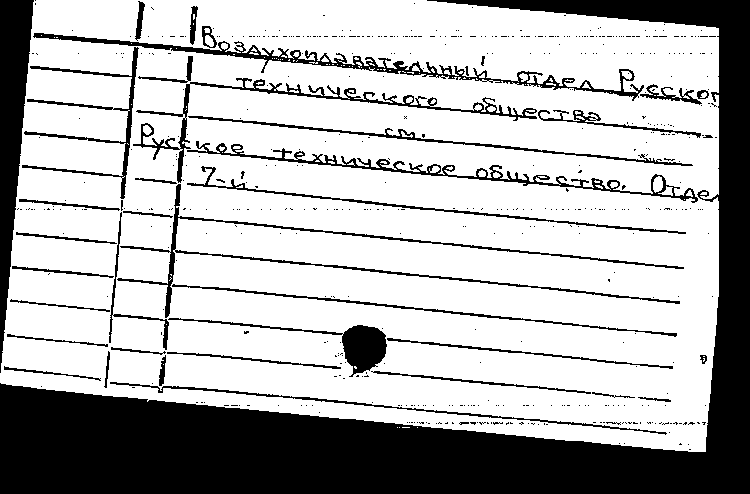 Воздухоплавательный отдел Русског
технического общества
см.
Русское техническое общество. Отдел
7-й.